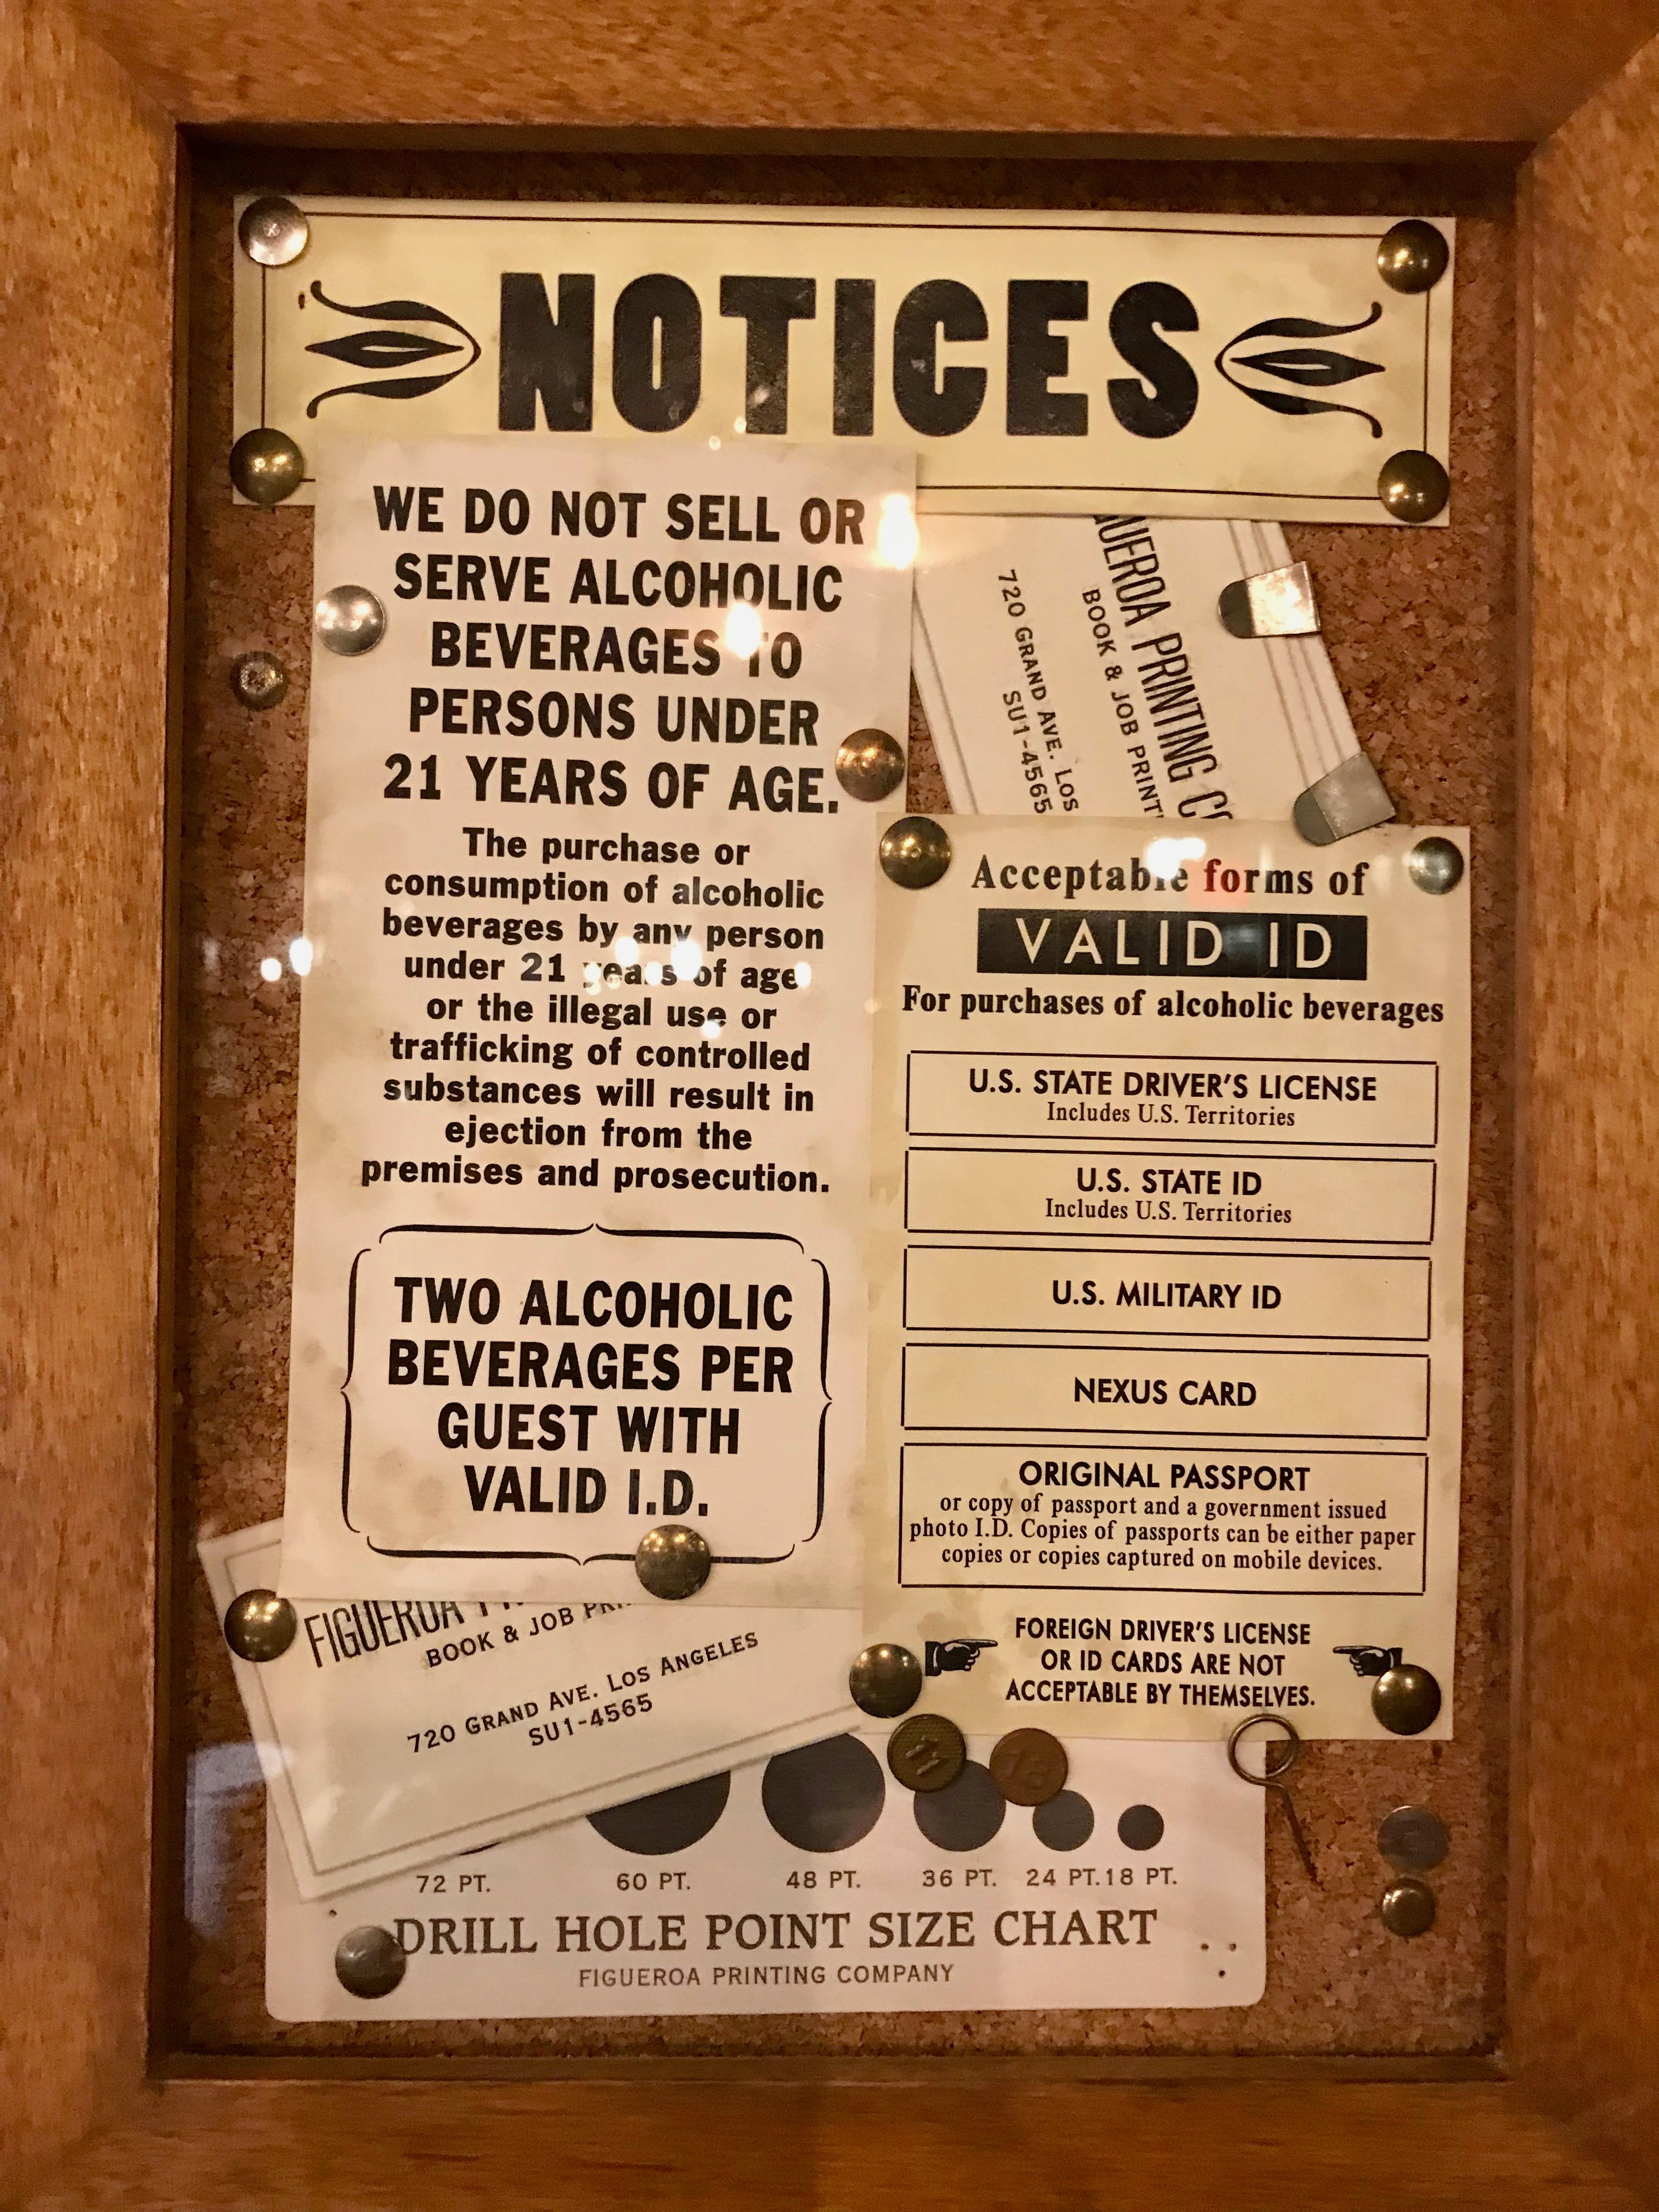 NOTICES
WE DO NOT SELL OR
SERVE ALCOHOLIC
BEVERAGES TO
PERSONS UNDER
21 YEARS OF AGE.
The purchase or
consumption of alcoholic
beverages by any person
under 21 years of age
or the illegal use or
trafficking of controlled
substances will result in
ejection from the
premises and prosecution.
TWO ALCOHOLIC
BEVERAGES PER
GUEST WITH
VALID I.D.
GUEROA PRINTING CO
BOOK & JOB PRINT
720 GRAND AVE. LOS
SU1-4565
Acceptable forms of
VALID ID
For purchases of alcoholic beverages
U.S. STATE DRIVER'S LICENSE
Includes U.S. Territories
U.S. STATE ID
Includes U.S. Territories
U.S. MILITARY ID
NEXUS CARD
ORIGINAL PASSPORT
or copy of passport and a government issued
photo I.D. Copies of passports can be either paper
copies or copies captured on mobile devices.
FOREIGN DRIVER'S LICENSE
OR ID CARDS ARE NOT
ACCEPTABLE BY THEMSELVES.
FIGUEROA
BOOK & JOB
720 GRAND AVE. LOS ANGELES
SU1-4565
11
72 PT. 60 PT. 48 PT. 36 PT. 24 PT. 18 PT.
DRILL HOLE POINT SIZE CHART
FIGUEROA PRINTING COMPANY